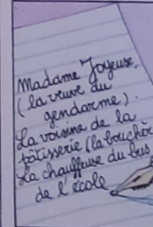 Madame Joyeuse,
(la veuve du
gendarme).
La voisine de la
pâtisserie (la bouchère
La chauffeuse du bus
de l'école